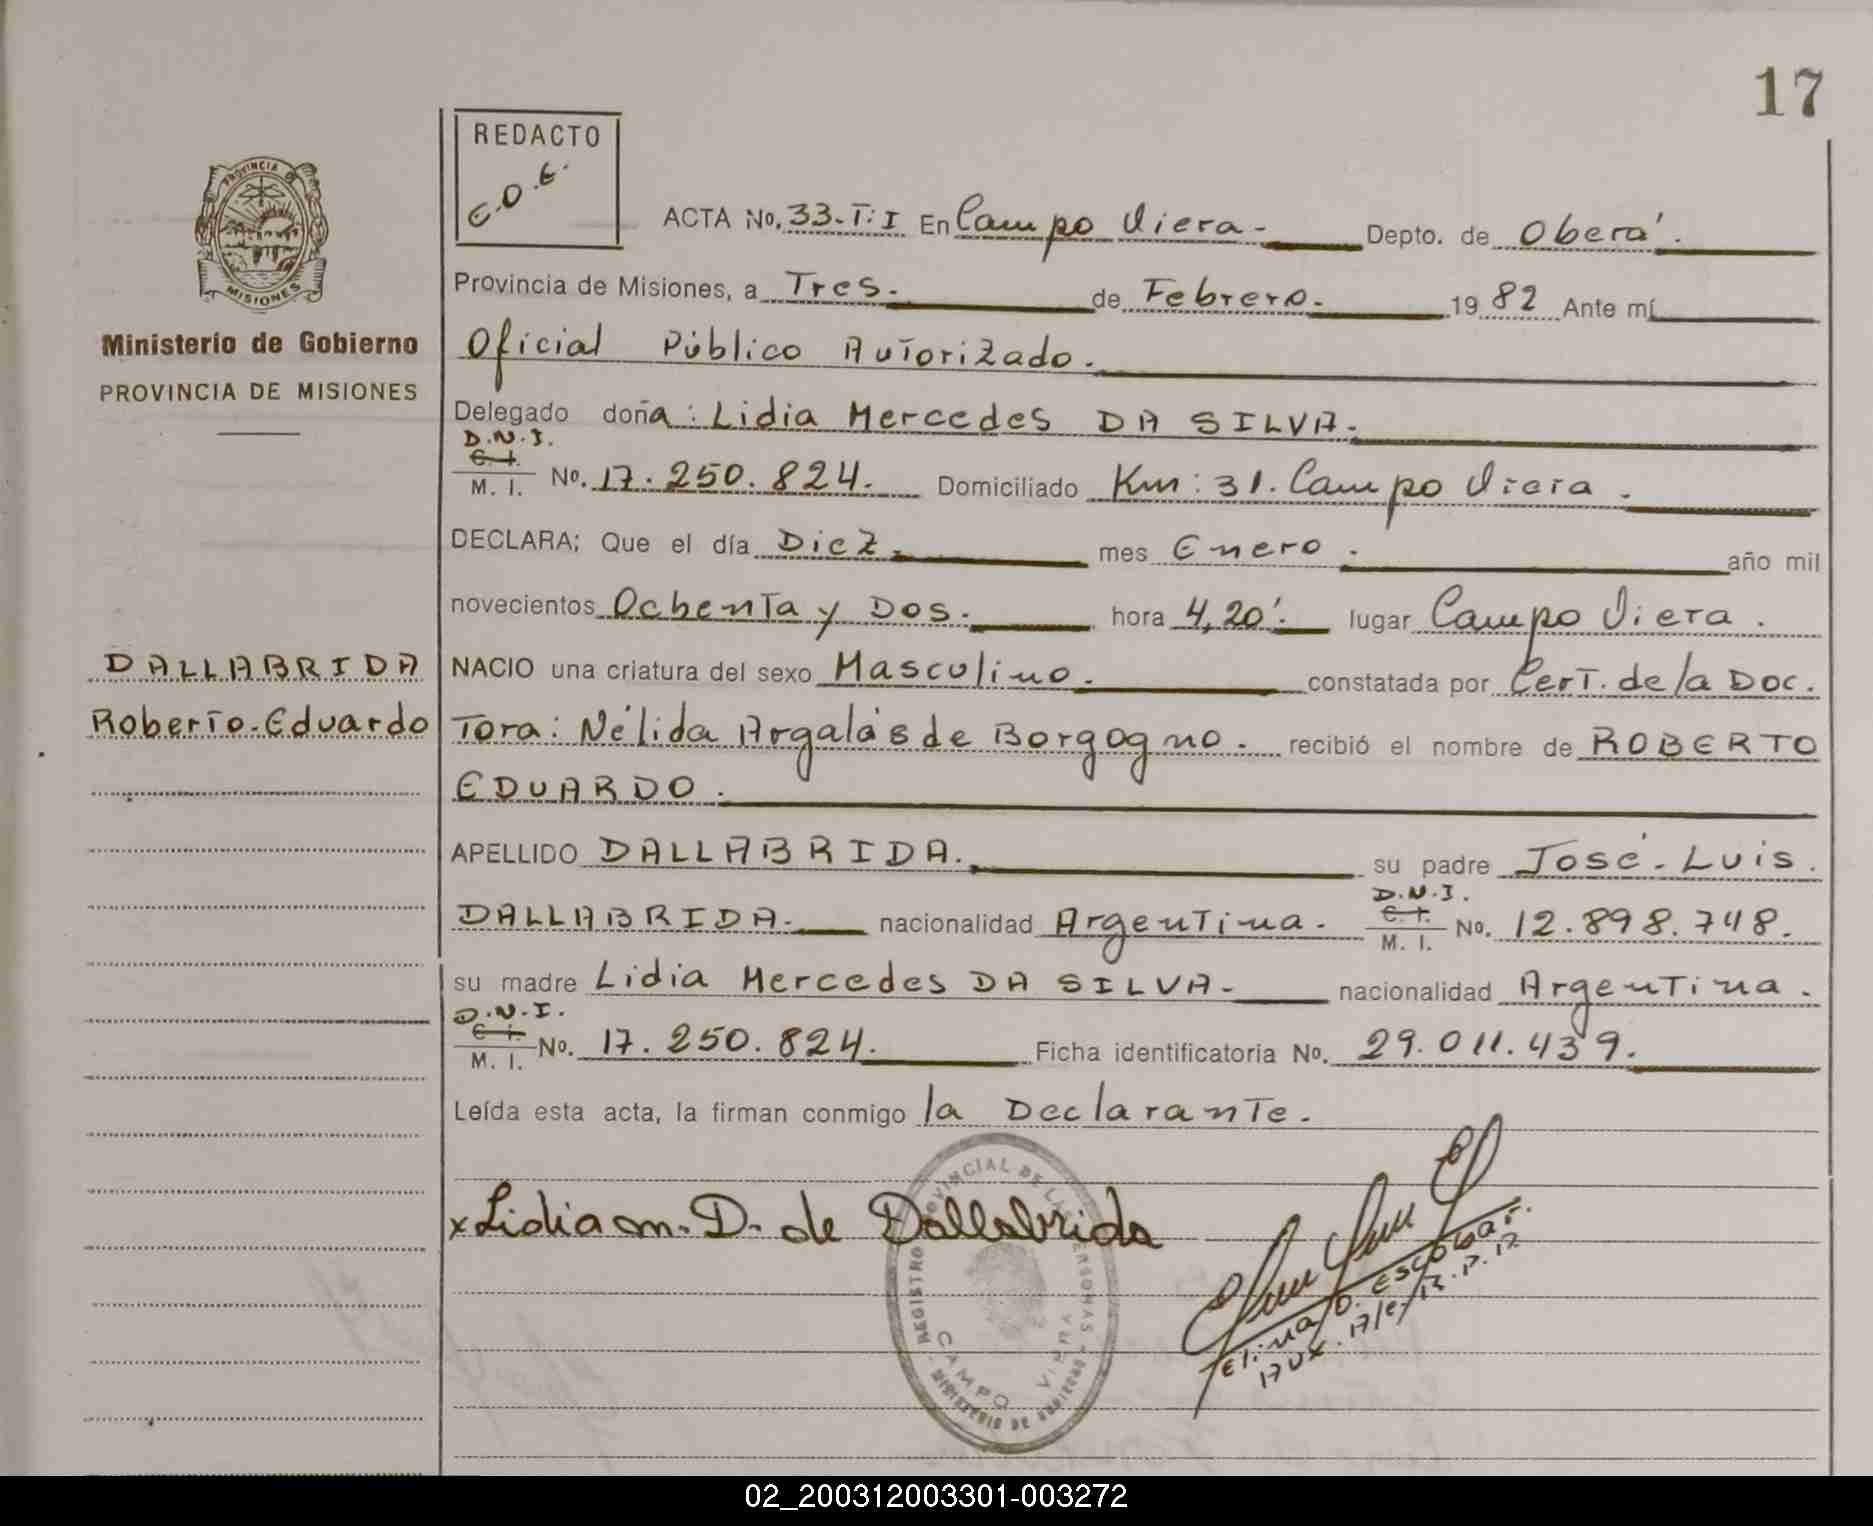 17
REDACTO
E.O.E.
PROVINCIA DE
MISIONES
Ministerio de Gobierno
PROVINCIA DE MISIONES
ACTA No. 33-T:I En Campo Viera- Depto. de Oberá.
Provincia de Misiones, a Tres. de Febrero. 1982 Ante mí
Oficial Público Autorizado.
Delegado doña: Lidia Mercedes DA SILVA.
D.N.I.
C. I.
M. I. No. 17.250.824. Domiciliado Km: 31. Campo Viera.
DECLARA; Que el día Diez. mes Enero. año mil
novecientos Ochenta y Dos. hora 4,20'. lugar Campo Viera.
DALLABRIDA
Roberto-Eduardo
NACIO una criatura del sexo Masculino. constatada por Cert. de la Doc.
Tora: Nélida Argalás de Borgogno. recibió el nombre de ROBERTO
EDUARDO.
APELLIDO DALLABRIDA. su padre José-Luis.
DALLABRIDA. nacionalidad Argentina. D.N.I. C. I. M. I. No. 12.898.748.
su madre Lidia Mercedes DA SILVA- nacionalidad Argentina.
D.N.I.
C. I.
M. I. No. 17.250.824. Ficha identificatoria No. 29.011.439.
Leída esta acta, la firman conmigo la Declarante.
x Lidia m. D. de Dallabrida
REGISTRO PROVINCIAL DE LAS PERSONAS
CAMPO VIERA
MINISTERIO DE
Elina O. Escobar.
02_200312003301-003272